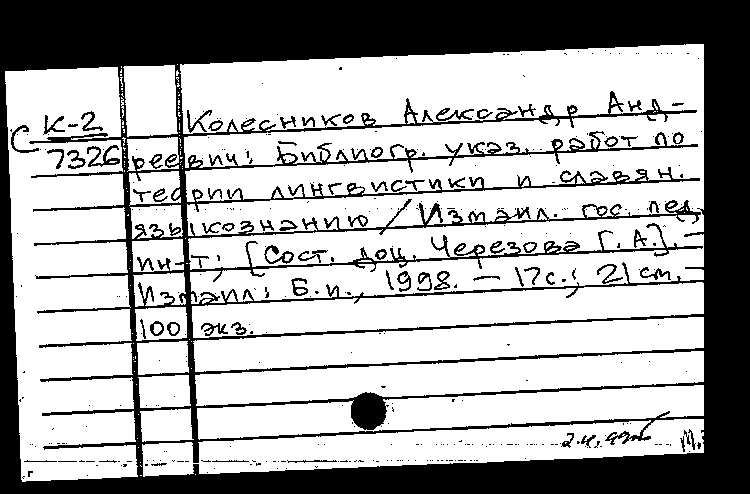 С К-2 Колесников Александр Анд-
7326 реевич: Библиогр. указ. работ по
теории лингвистики и славян.
языкознанию / Измаил. гос. пед.
ин-т; [Сост. доц. Черезова Г. А.]. —
Измаил: Б.и., 1998. — 17с.; 21 cm. —
100 экз.